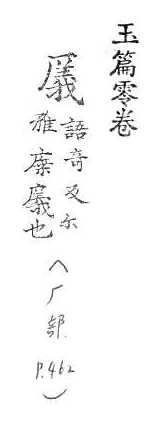 玉篇零卷
語奇反尒
雅也
（厂部 P.462）